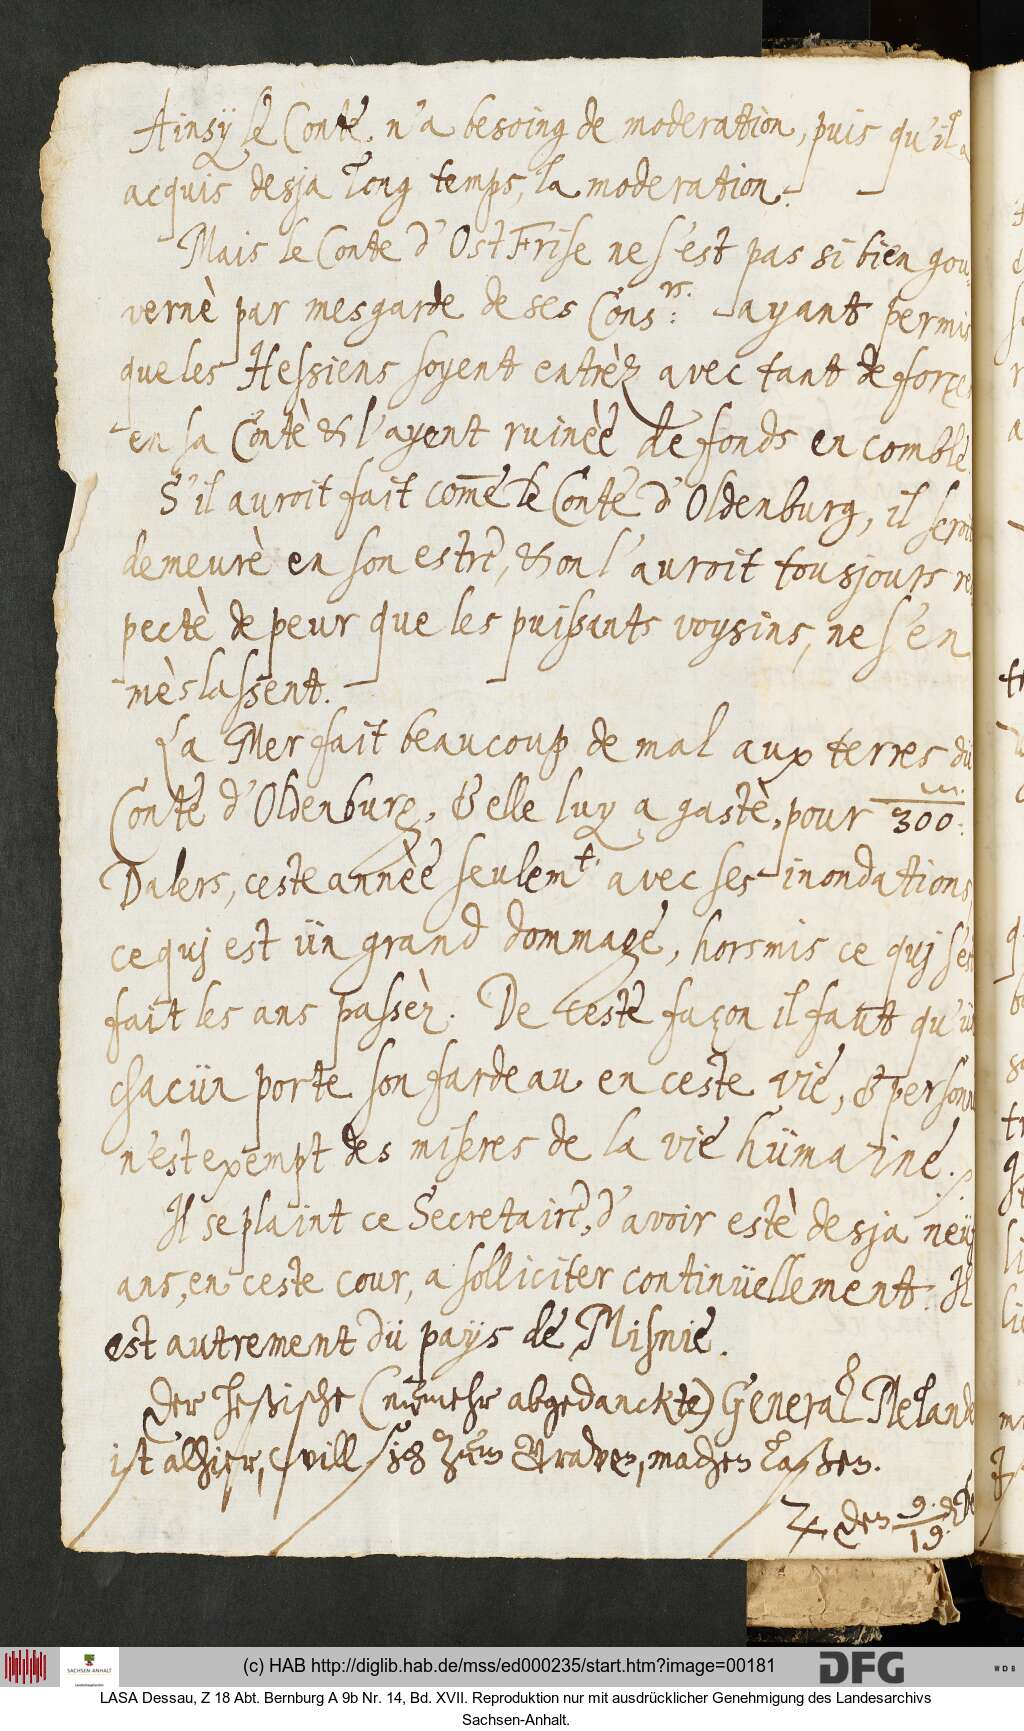 Ainsÿ le Conte n'a besoing de moderation, puis qu'il a
acquis desja long temps, la moderation.
Mais le Conte d'OstFrise ne s'est pas si bien gou-
vernè par mesgarde de ses Cons:rs. ayant permis
que les Hessiens soyent entrèz avec tant de forces
en sa Contè & l'ayent ruinèè de fonds en comble.
S'il auroit fait com̄e le Conte d'Oldenburg, il seroit
demeurè en son estre, & on l'auroit tousjours res
pectè de peur que les puissants voysins, ne s'en
mèslassent.
La Mer fait beaucoup de mal aux terres du
Conte d'Oldenburg, & elle luy a gastè, pour 300 m.
Dalers, ceste annèè seulem.t avec ses inondations,
ce quj est ün grand dommage, horsmis ce quj s'est
fait les ans passèz. De ceste façon il fault qu'ün
chacün porte son fardeau en ceste vie, & personne
n'est exempt des miseres de la vie hümaine.
Il se plaint ce Secretaire, d'avoir estè desja neüf
ans, en ceste cour, a solliciter continüellement. Il
est autrement dü paÿs de Misnie.
Der Heßische (nunmehr abgedanckte) General Melander
ist alhier, will sich zum Graven, machen laßen.
den 9. / 19.
(c) HAB http://diglib.hab.de/mss/ed000235/start.htm?image=00181
SACHSEN-ANHALT
DFG
WDB
LASA Dessau, Z 18 Abt. Bernburg A 9b Nr. 14, Bd. XVII. Reproduktion nur mit ausdrücklicher Genehmigung des Landesarchivs
Sachsen-Anhalt.